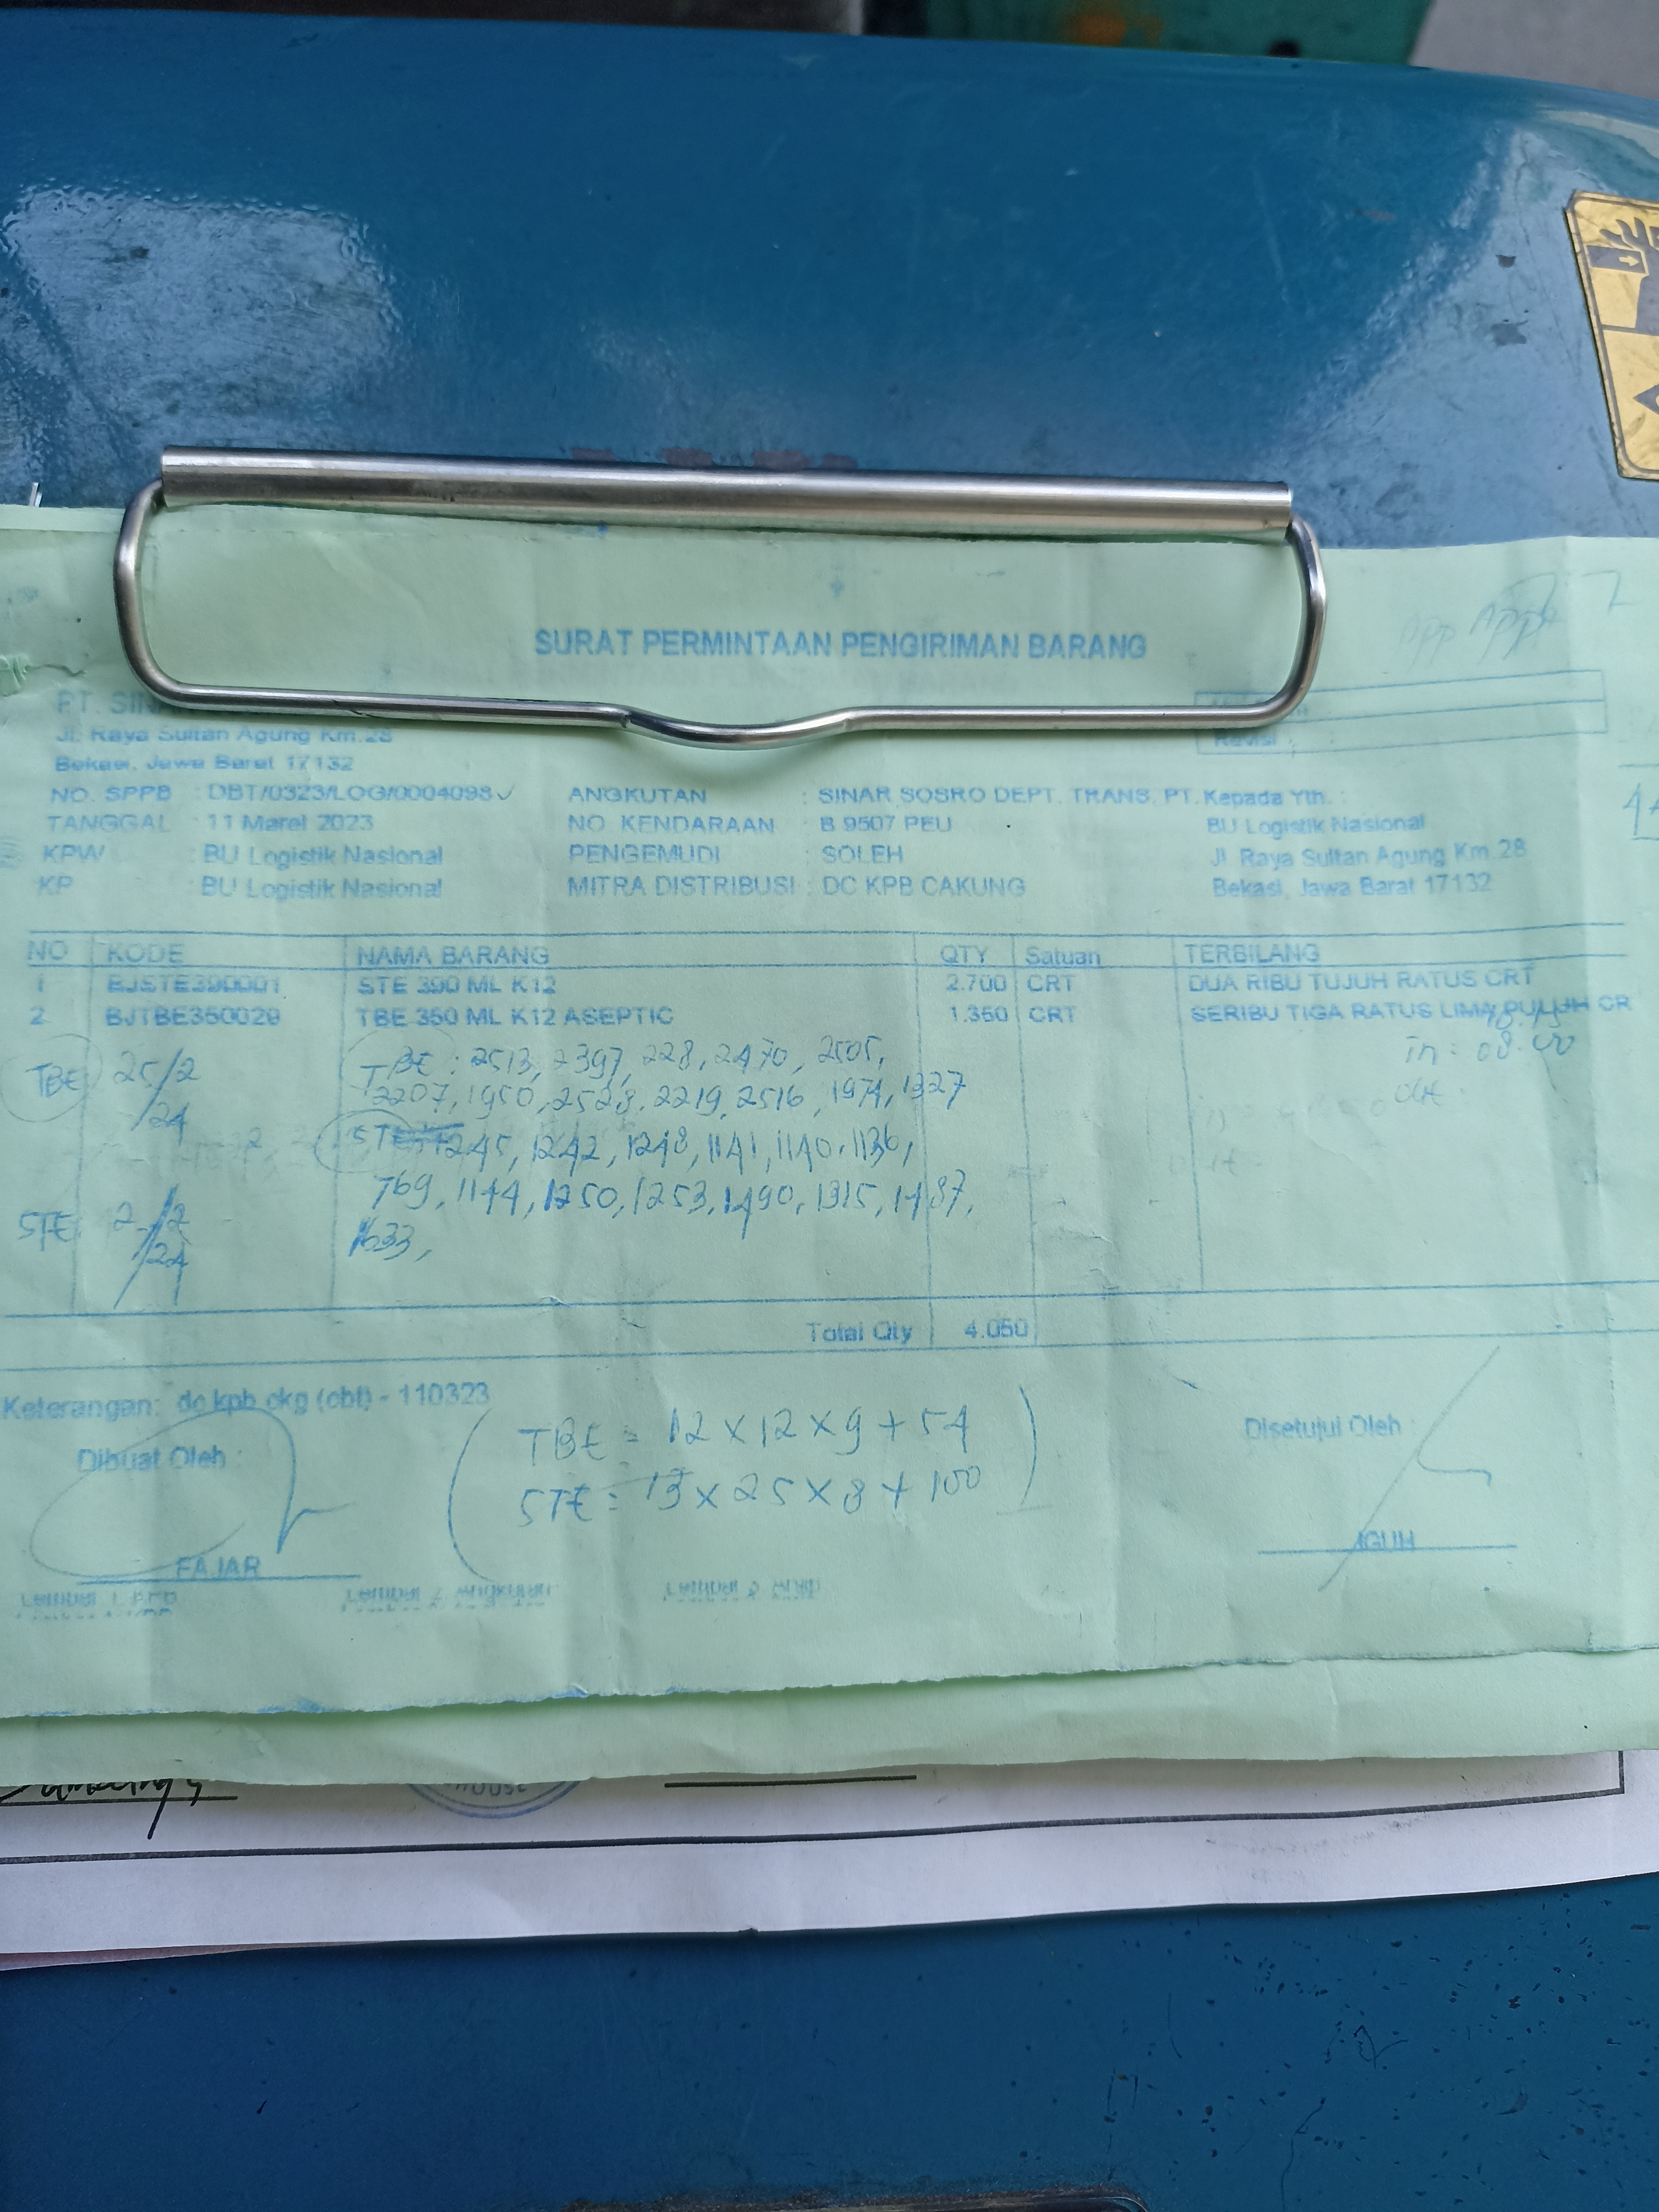 SURAT PERMINTAAN PENGIRIMAN BARANG
PT. SINAR
Jl. Raya Sultan Agung Km.28
Bekasi, Jawa Barat 17132
Revisi :
NO. SPPB : DBT/0323/LOG/0004098 ✓
TANGGAL : 11 Maret 2023
KPW : BU Logistik Nasional
KP : BU Logistik Nasional
ANGKUTAN : SINAR SOSRO DEPT. TRANS. PT.
NO. KENDARAAN : B 9507 PEU
PENGEMUDI : SOLEH
MITRA DISTRIBUSI : DC KPB CAKUNG
Kepada Yth. :
BU Logistik Nasional
Jl. Raya Sultan Agung Km.28
Bekasi, Jawa Barat 17132
NO KODE NAMA BARANG QTY Satuan TERBILANG
1 BJSTE390001 STE 390 ML K12 2.700 CRT DUA RIBU TUJUH RATUS CRT
2 BJTBE350029 TBE 350 ML K12 ASEPTIC 1.350 CRT SERIBU TIGA RATUS LIMA PULUH CR
TBE 25/2
/24
TBE : 2513, 2397, 228, 2470, 2505,
2207, 1950, 2528, 2219, 2516, 1974, 1327
STE 1245, 1242, 1248, 1141, 1140, 1136,
769, 1144, 1250, 1253, 1490, 1315, 1487,
1633,
STE 2/2
/24
in : 08.00
out :
Total Qty 4.050
Keterangan: dc kpb ckg (cbt) - 110323
Dibuat Oleh :
FAJAR
TBE = 12 x 12 x 9 + 54
STE = 13 x 25 x 8 + 100
Disetujui Oleh :
IGUH
Lembar 1. KPB
Lembar 2. Angkutan